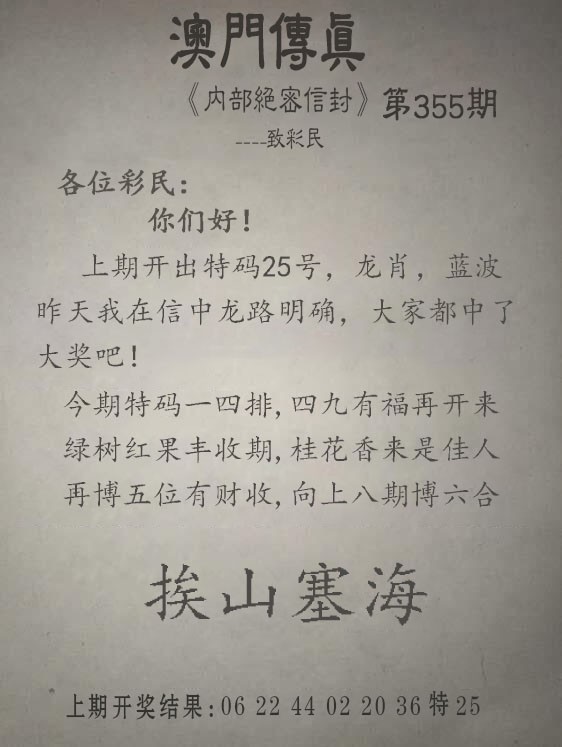 澳門傳眞
《内部絕密信封》第355期
----致彩民
各位彩民:
你们好!
上期开出特码25号，龙肖，蓝波
昨天我在信中龙路明确，大家都中了
大奖吧!
今期特码一四排,四九有福再开来
绿树红果丰收期,桂花香来是佳人
再博五位有财收,向上八期博六合
挨山塞海
上期开奖结果:06 22 44 02 20 36 特 25